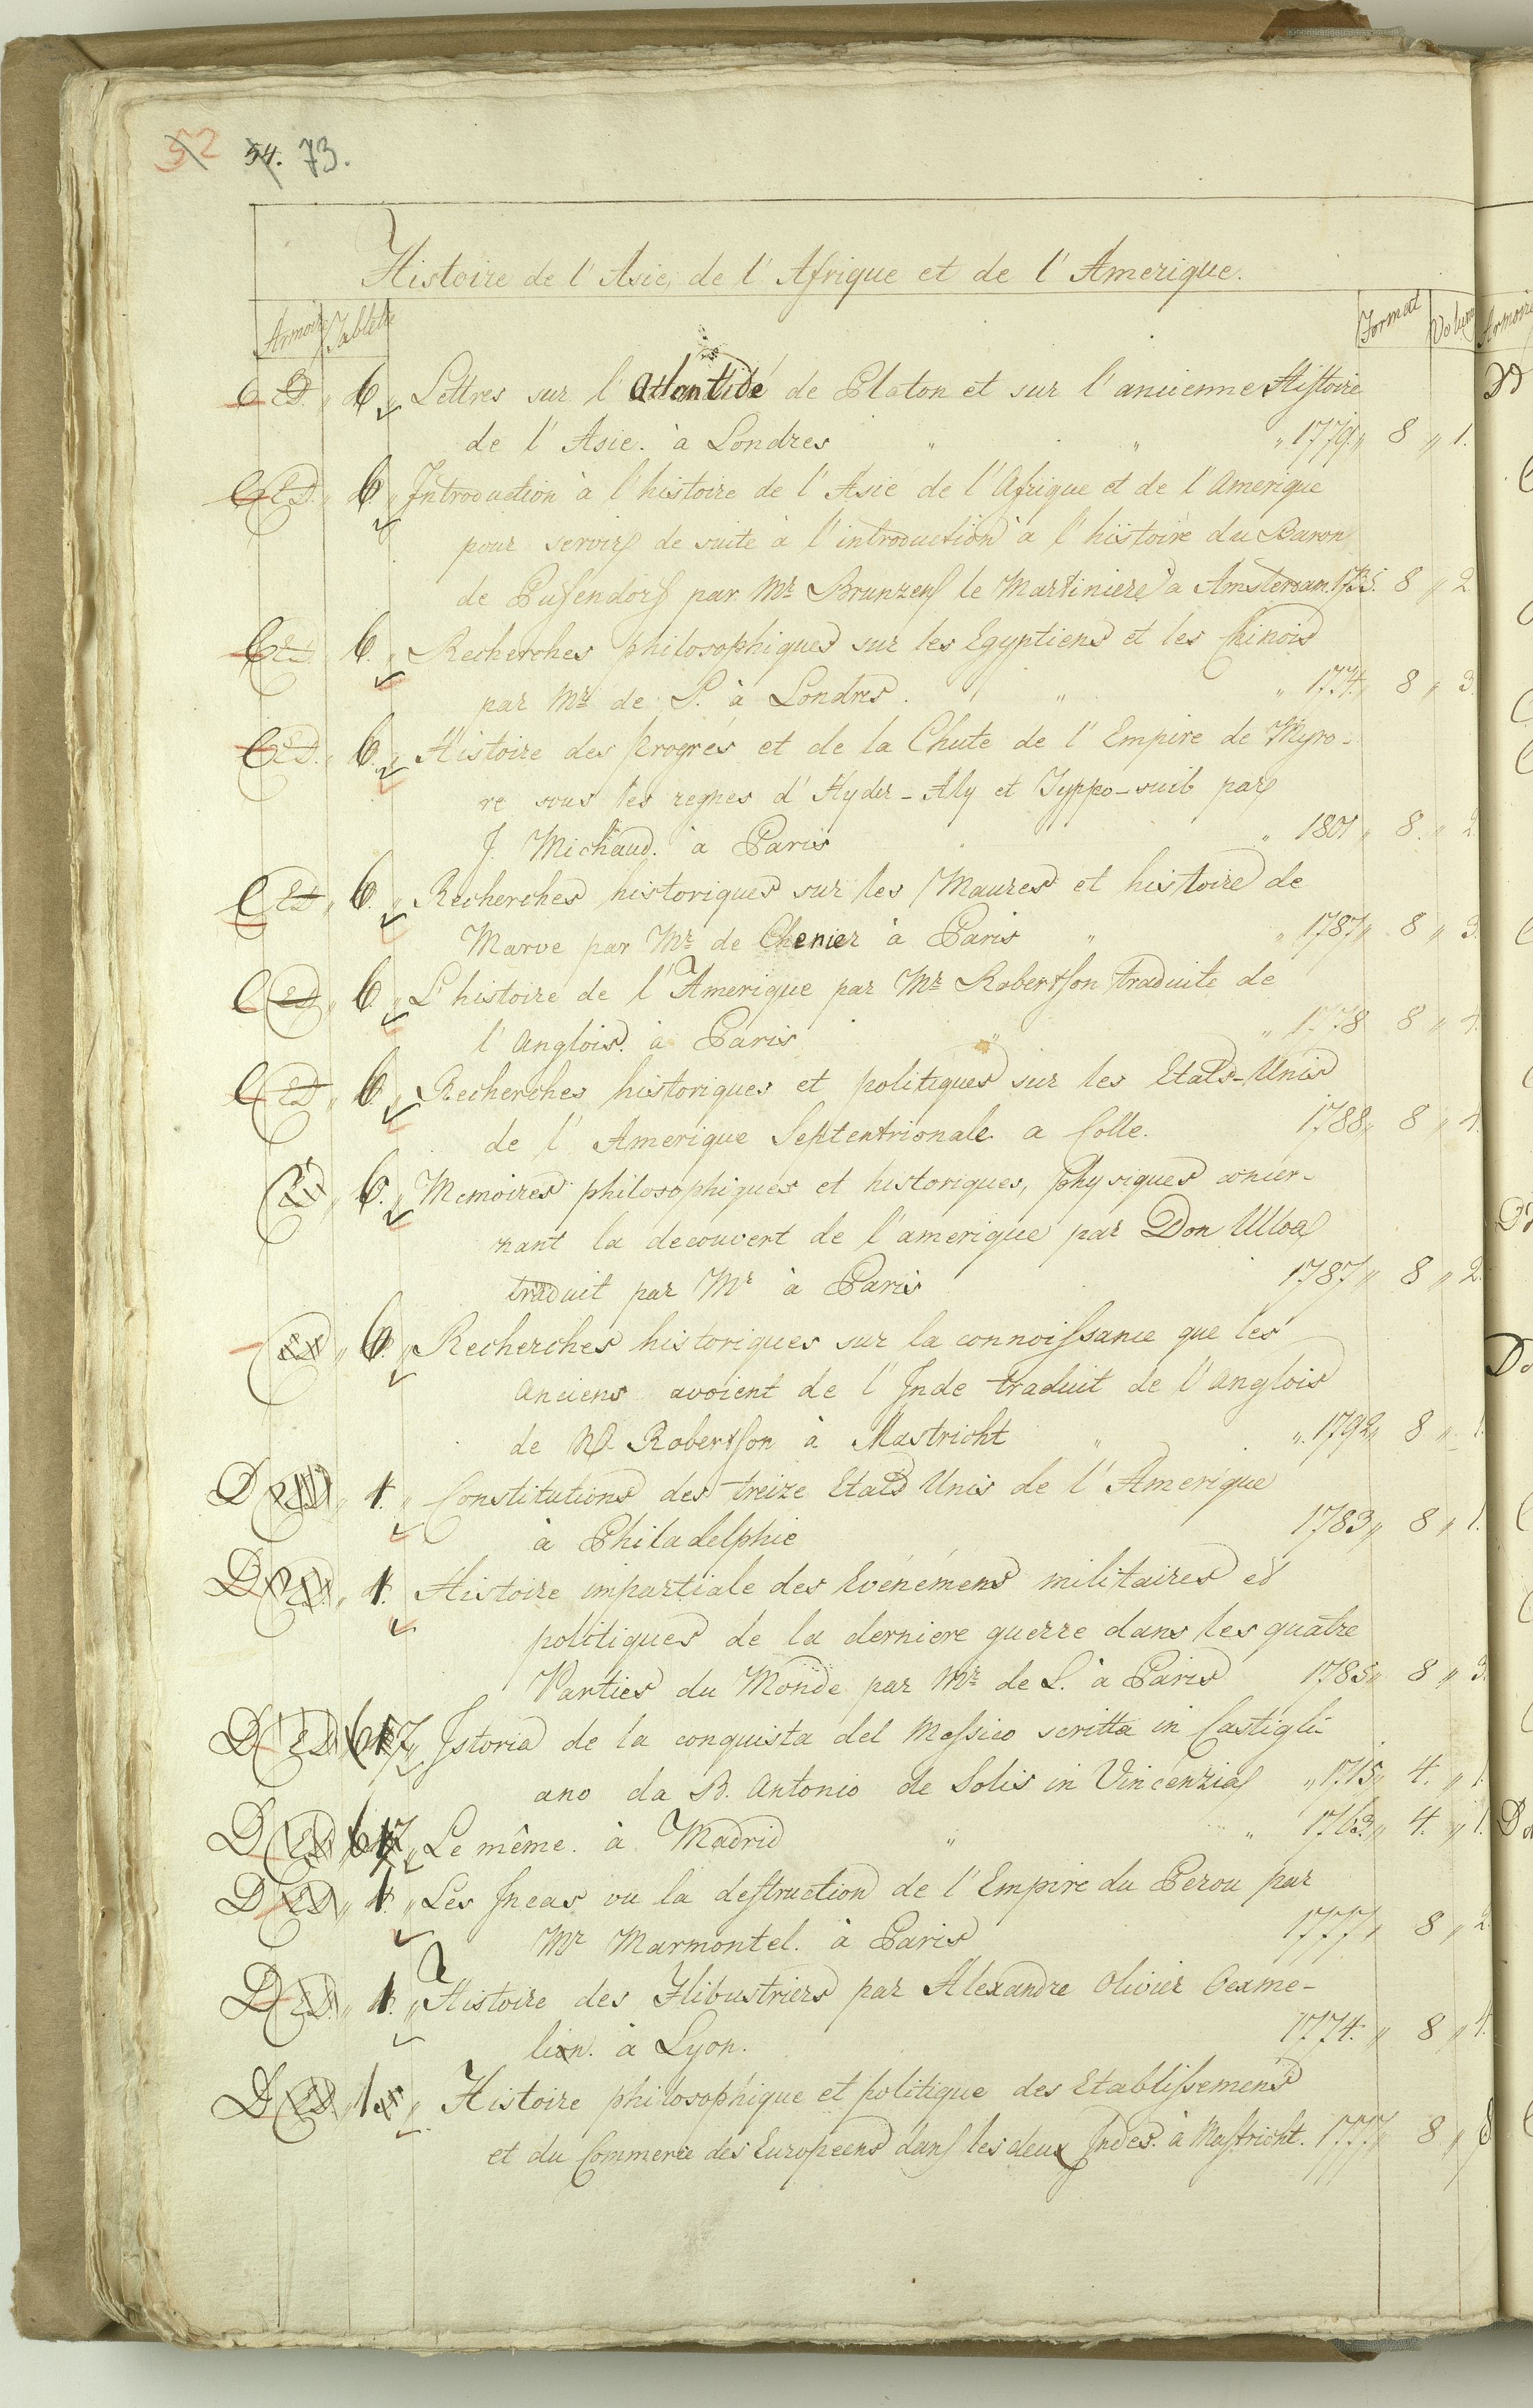 52 54. 73.
Histoire de l'Asie, de l'Afrique et de l'Amerique.
Armoire Tablette Format Volum
C 6. Lettres sur l'Atlantide de Platon et sur l'ancienne Histoire
de l'Asie. à Londres " " " 1779 " 8 " 1.
C 6 Introduction à l'histoire de l'Asie de l'Afrique et de l'Amerique
pour servir de suite à l'introduction à l'histoire du Baron
de Pufendorf par Mr Brunzen le Martiniere à Amsterdam. 1735. 8 " 2
C 6. Recherches philosophiques sur les Egyptiens et les Chinois
par Mr de P. à Londres. " " 1774 " 8 " 3.
C 6. Histoire des progrés et de la Chute de l'Empire de Myso-
re sous les regnes d'Hyder-Aly et Typpo-saib par
J. Michaud. à Paris " 1801 " 8. " 2
C 6. Recherches historiques sur les Maures et histoire de
Maroc par Mr de Chenier à Paris " " 1787 " 8 " 3.
C 6 L'histoire de l'Amerique par Mr Robertson traduite de
l'Anglois. à Paris " " 1778 8 "
C 6. Recherches historiques et politiques sur les Etats-Unis
de l'Amerique Septentrionale a Colle. 1788 " 8 "
6. Memoires philosophiques et historiques, physiques concer-
nant la decouvert de l'amerique par Don Ulloa
traduit par Mr à Paris 1787 " 8 " 2.
6. Recherches historiques sur la connoissance que les
Anciens avoient de l'Inde traduit de l'Anglois
de Robertson à Mastricht " " 1792 " 8 " 1.
D 4. Constitutions des treize Etats Unis de l'Amerique
à Philadelphie 1783 " 8 " 1.
D 4. Histoire impartiale des Evénémens militaires et
politiques de la derniere guerre dans les quatre
Parties du Monde par Mr de L. à Paris 1785 " 8 " 3.
D 7 Istoria de la conquista del Messico scritta in Castigli-
ano da D. Antonio de Solis in Vincenzia " 1715 " 4. " 1.
D 7 Le même. à Madrid " " 1763 " 4. " 1.
D 4. Les Incas ou la destruction de l'Empire du Perou par
Mr Marmontel. à Paris 1777 " 8 " 2
D 4. Histoire des Flibustriers par Alexandre Olivier Oexme-
lion. à Lyon. 1774. " 8 " 4.
D 1 Histoire philosophique et politique des Etablissemens
et du Commerce des Europeens dans les deux Indes. à Mastricht. 1777 " 8 "